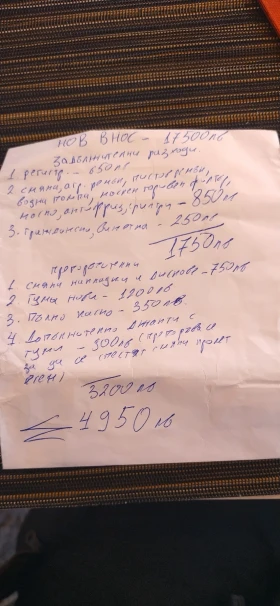 НОВ ВНОС - 17500лв
Задължителни разходи.
1 регистр. - 650лв
2 смяна, агр. ремък, пистов ремък,
водна помпа, маслен горивен филтър,
масло, антифриз, филтри - 850лв
3. Гражданска, винетка - 250лв
1750лв
препоръчителни
1 смяна накладки и дискове - 750лв
2 Гуми нови - 1200лв
3. Пълно каско - 350лв
4 Допълнително джанти с
гуми - 900лв (препоръка
за да се спестят смени пролет
есен)
3200лв
4950лв